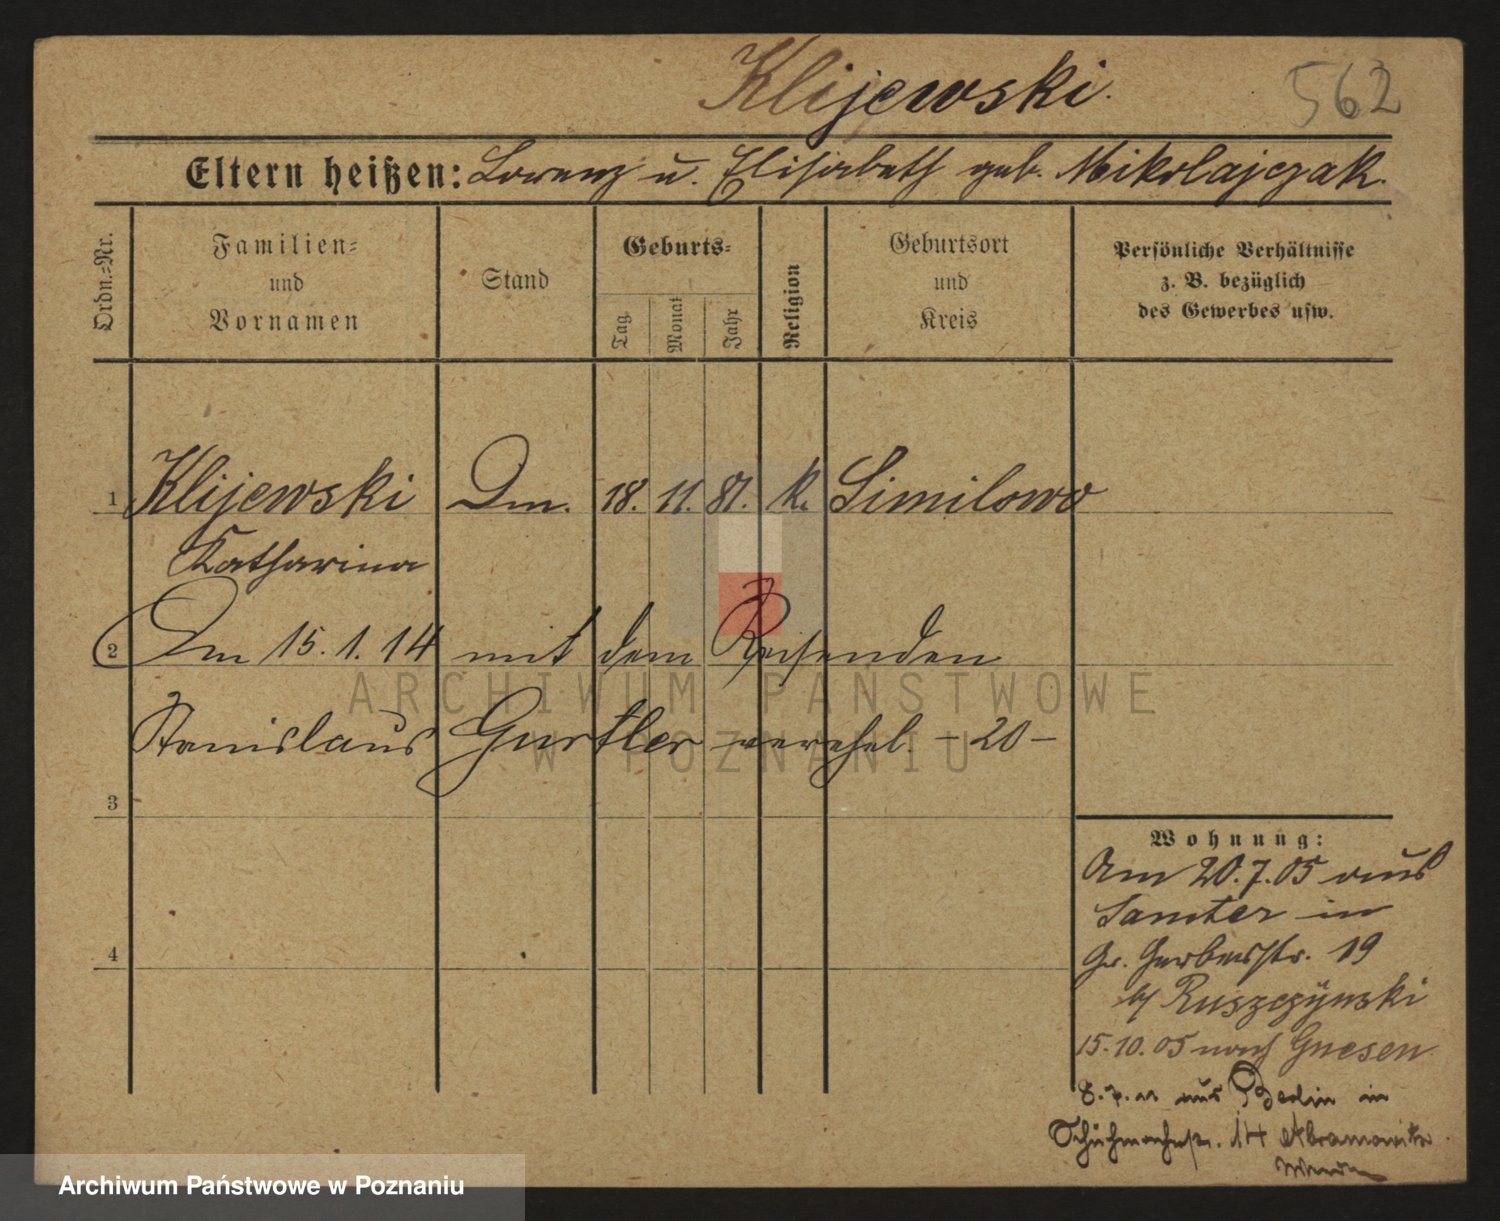 Klijewski.
562
Eltern heißen: Lorenz u. Elisabeth geb. Mikolajczak.
Ordn.=Nr.
Familien=
und
Vornamen
Stand
Geburts=
Tag
Monat
Jahr
Religion
Geburtsort
und
Kreis
Persönliche Verhältnisse
z. B. bezüglich
des Gewerbes usw.
1 Klijewski Dm. 18. 11. 81. k. Similowo
Katharina
2 Am 15.1.14 mit dem Reisenden
Stanislaus Gurtler verehel. – 20 –
3
4
Wohnung:
Am 20.7.05 aus
Samter in
Gr. Gerberstr. 19
b/ Ruszczynski
15.10.05 nach Gnesen
8.7.11 aus Berlin in
Schuhmacherstr. 14 Abramowitz
ARCHIWUM PAŃSTWOWE
W POZNANIU
Archiwum Państwowe w Poznaniu